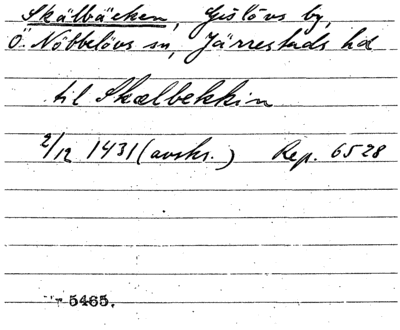 Skälbäcken, Gislövs by,
Ö. Nöbbelövs sn, Järrestads hd
til Skælbekkin
2/12 1431 (avskr.) Rep. 6528
5465.